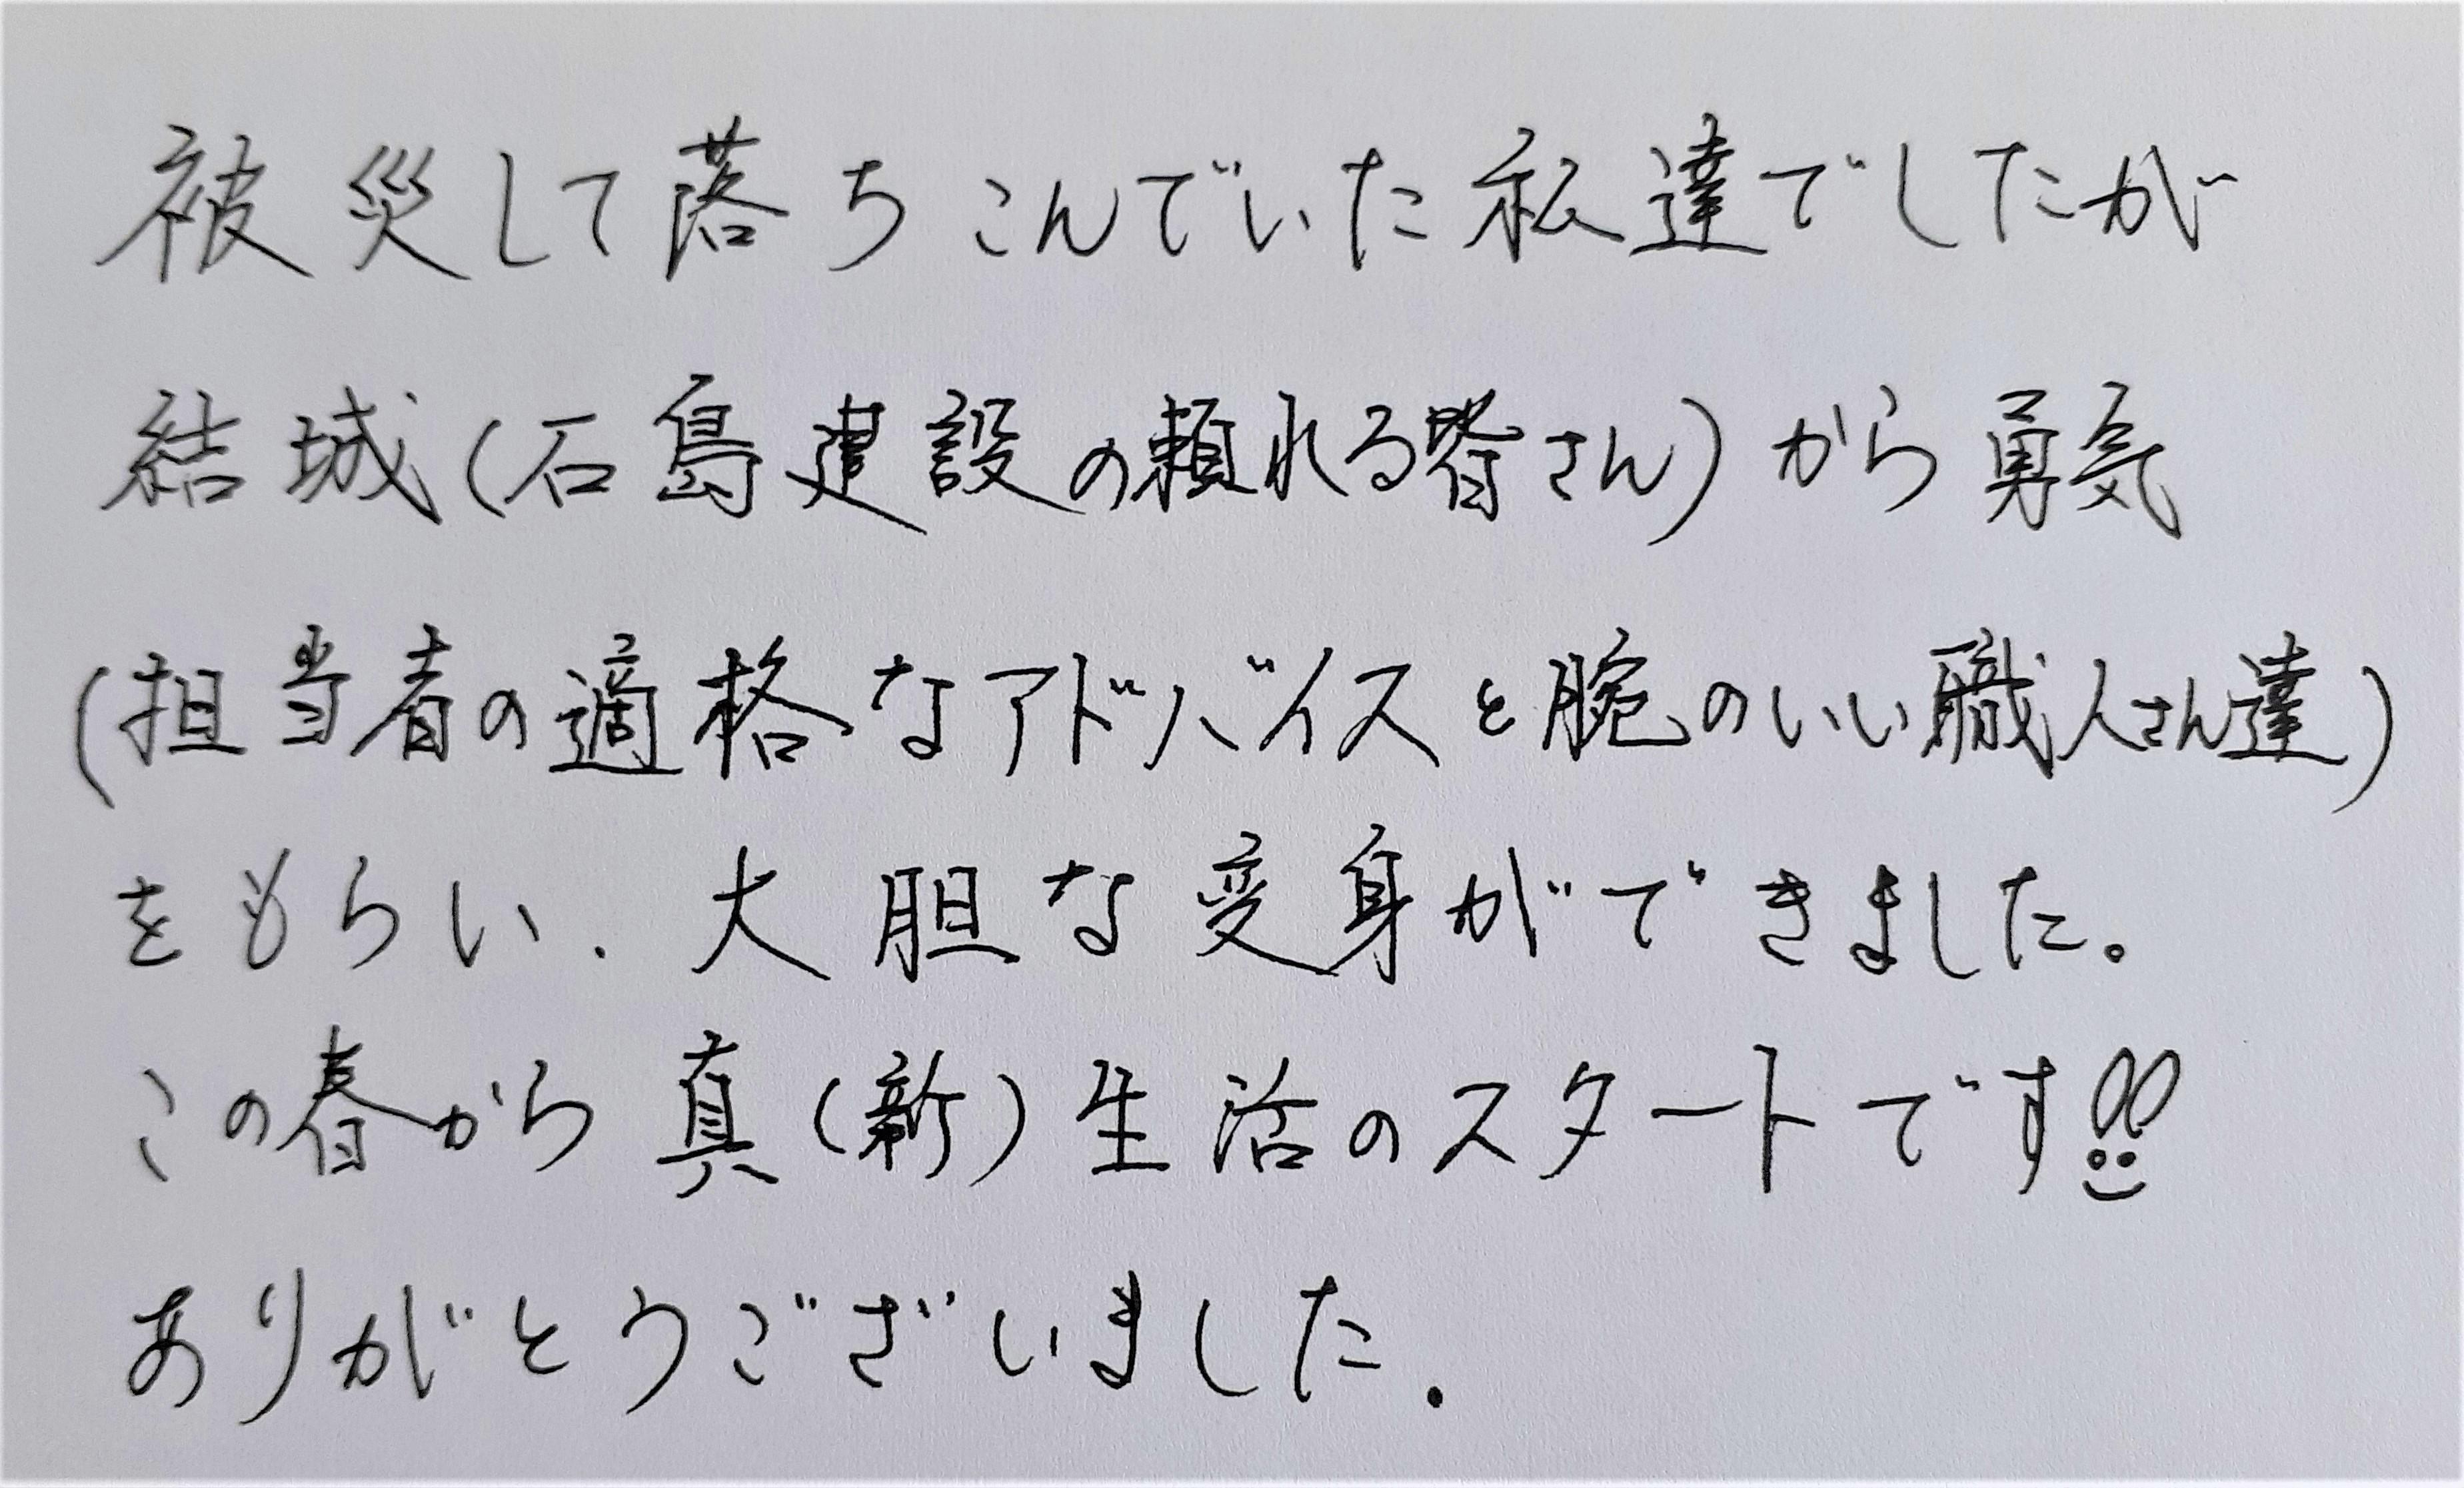 被災して落ちこんでいた私達でしたが
結城(石島建設の頼れる皆さん)から勇気
(担当者の適格なアドバイスと腕のいい職人さん達)
をもらい、大胆な変身ができました。
この春から真(新)生活のスタートです!!
ありがとうございました.